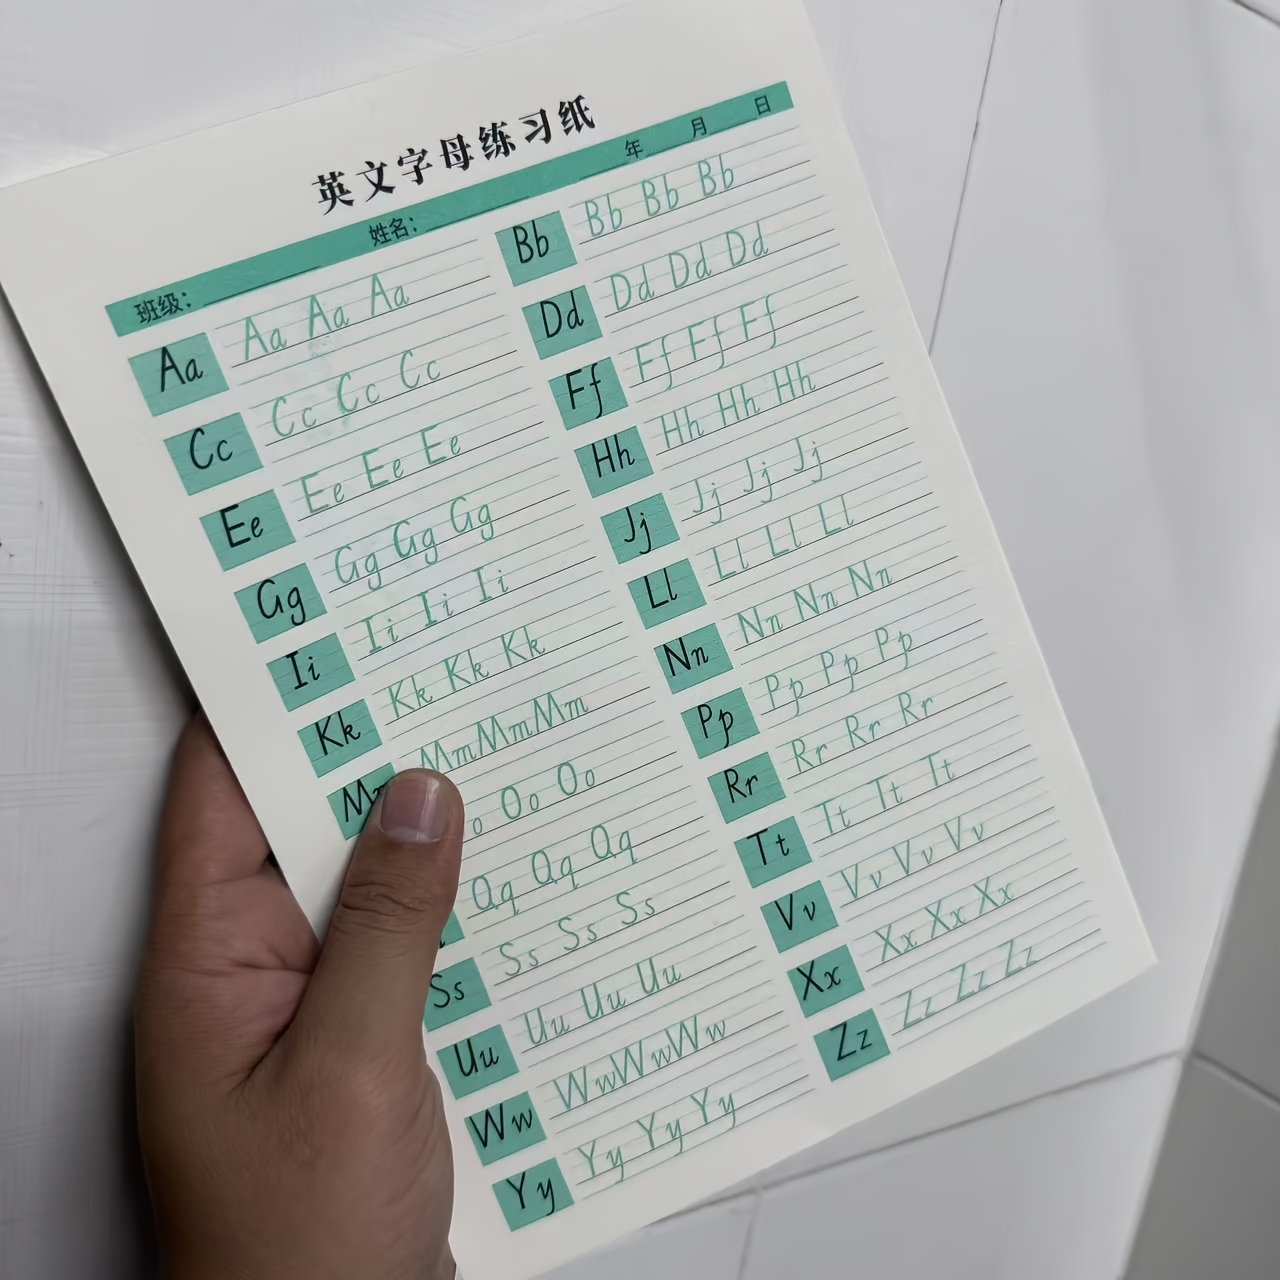 英文字母练习纸
班级： 姓名： 年 月 日
Aa Aa Aa Aa
Bb Bb Bb Bb
Cc Cc Cc Cc
Dd Dd Dd Dd
Ee Ee Ee Ee
Ff Ff Ff Ff
Gg Gg Gg Gg
Hh Hh Hh Hh
Ii Ii Ii Ii
Jj Jj Jj Jj
Kk Kk Kk Kk
Ll Ll Ll Ll
Mm Mm Mm
Nn Nn Nn Nn
Oo Oo
Pp Pp Pp Pp
Qq Qq Qq
Rr Rr Rr Rr
Ss Ss Ss Ss
Tt Tt Tt Tt
Uu Uu Uu Uu
Vv Vv Vv Vv
Ww Ww Ww Ww
Xx Xx Xx Xx
Yy Yy Yy Yy
Zz Zz Zz Zz